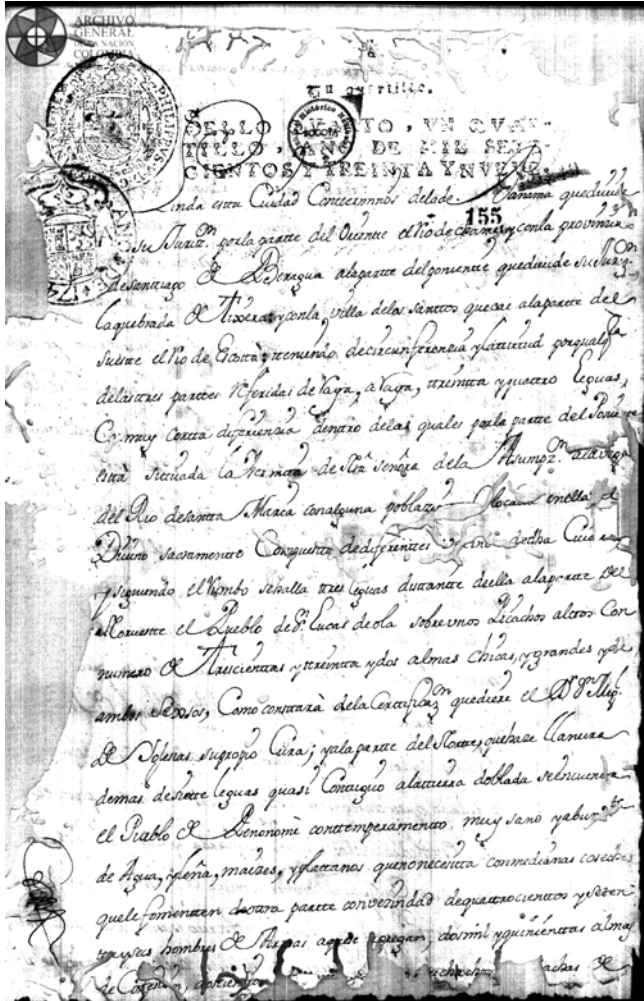 ARCHIVO
GENERAL
DE LA NACIÓN
COLOMBIA
Un quartillo.
SELLO QVARTO, VN QVAR-
TILLO, AÑO DE MIL SETE-
CIENTOS Y TREINTA Y NVEVE.
155
Linda esta Ciudad Conterminos delade Panama quedaude
su Jurizn. por la parte del Oriente el Rio de chame, y con la provinzia
de santiago de Beragua ala parte del poniente quedaude su
la quebrada de y con la villa delos santtos que cae ala parte del
sudste el Rio de Escotta; tteniendo de circunferencia y latitud por qualqa.
delas tres parttes Referidas de Vaya, a Vaya, treintta y quattro Leguas,
Con muy cortta diferienzia dentro delas quales por la partte del Poniente
està sittuada la Hermita de Ntra. señora dela Assumpzn. ala vega
del Rio de santta Maria con alguna poblazon y locado en ella el
Divino sacramentto de diferentes dicha Ciudad
y siguiendo el Rumbo se halla tres leguas disttante de ella ala parte del
Noruestte el Pueblo de Sn. Lucas de ola sobre unos Picachos altos Con
numero de Trescienttas y treintta y dos almas Chicas, y grandes y de
ambos sexsos, Como consttarà dela Certtificazn. que diere el Dn. Migl.
De Yglesias su propio Cura; y ala partte del Nortte, que haze llanura
demas de siette leguas quasi Conttiguo ala ttierra doblada se encuentra
el Pueblo de Penonomè con ttemperamentto muy sano y abundtte.
de Agua, y leña, maizes, y plattanos que no necesitta con medianas cosechas
que le fomentten de ottra partte con vezindad de quattrocienttos y seten
ta y seis hombres de Armas agregan, dos mil y quinienttas almas
de Confesion,